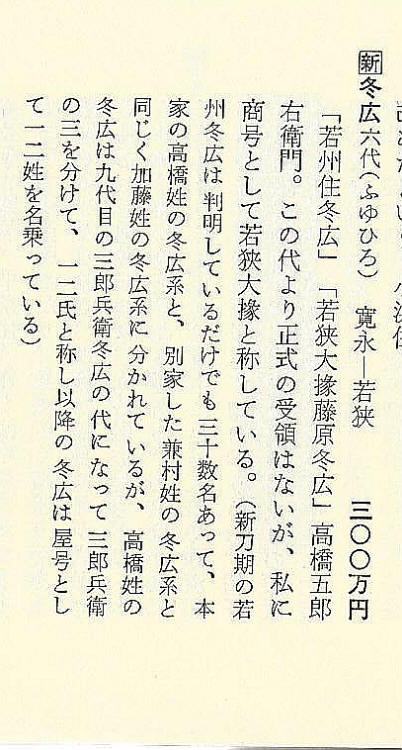 新 冬広 六代(ふゆひろ) 寛永―若狭 三〇〇万円
「若州住冬広」「若狭大掾藤原冬広」高橋五郎
右衛門。この代より正式の受領はないが、私に
商号として若狭大掾と称している。(新刀期の若
州冬広は判明しているだけでも三十数名あって、本
家の高橋姓の冬広系と、別家した兼村姓の冬広系と
同じく加藤姓の冬広系に分かれているが、高橋姓の
冬広は九代目の三郎兵衛冬広の代になって三郎兵衛
の三を分けて、一二氏と称し以降の冬広は屋号とし
て一二姓を名乗っている)